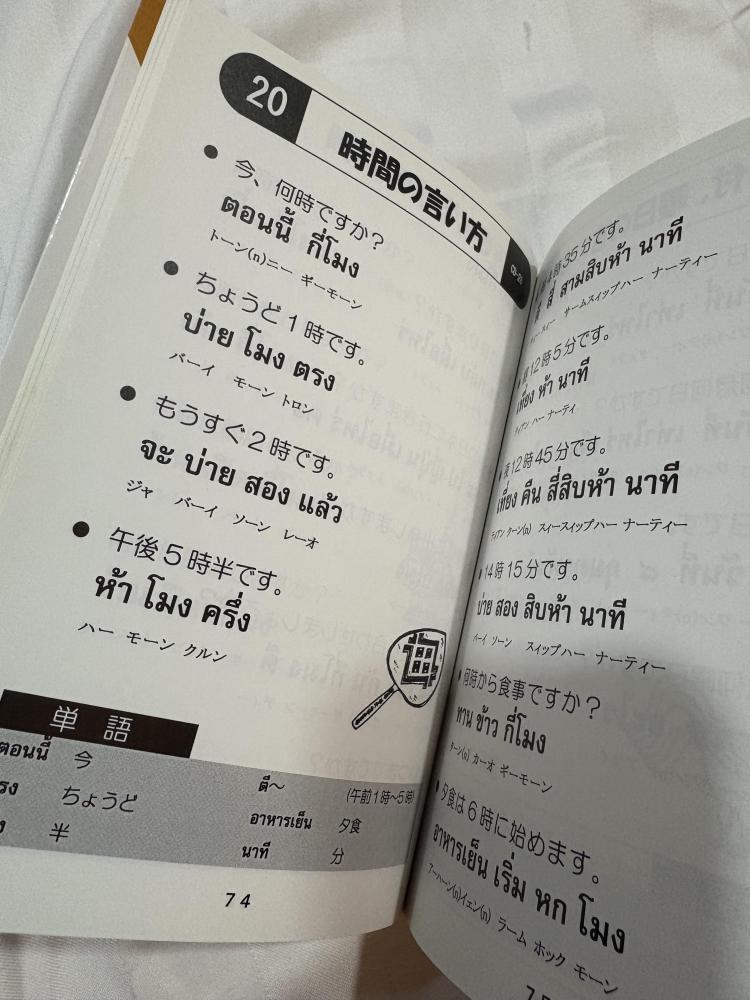 20
時間の言い方
CD-20
今、何時ですか?
ตอนนี้ กี่โมง
トーン(n)ニー ギーモーン
ちょうど1時です。
บ่าย โมง ตรง
バーイ モーン トロン
もうすぐ2時です。
จะ บ่าย สอง แล้ว
ジャ バーイ ソーン レーオ
午後5時半です。
ห้า โมง ครึ่ง
ハー モーン クルン
単語
ตอนนี้ 今
ちょうど
半
ตี〜 (午前1時〜5時)
อาหารเย็น 夕食
นาที 分
74
時35分です。
สี่ สามสิบห้า นาที
サームスィップハー ナーティー
12時5分です。
เที่ยง ห้า นาที
ティアン ハー ナーティ
12時45分です。
เที่ยง คืน สี่สิบห้า นาที
ティアン クーン(n) スィースィップハー ナーティー
14時15分です。
บ่าย สอง สิบห้า นาที
バーイ ソーン スィップハー ナーティー
何時から食事ですか?
ทาน ข้าว กี่โมง
ターン(n) カーオ ギーモーン
夕食は6時に始めます。
อาหารเย็น เริ่ม หก โมง
アーハーン(n)イェン(n) ラーム ホック モーン